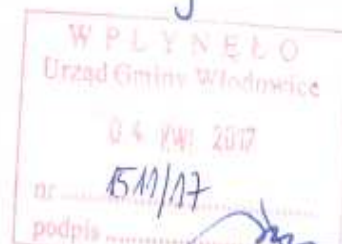 WPŁYNĘŁO
Urząd Gminy Włodowice
04 KWI. 2017
nr ........ 1511/17
podpis ........